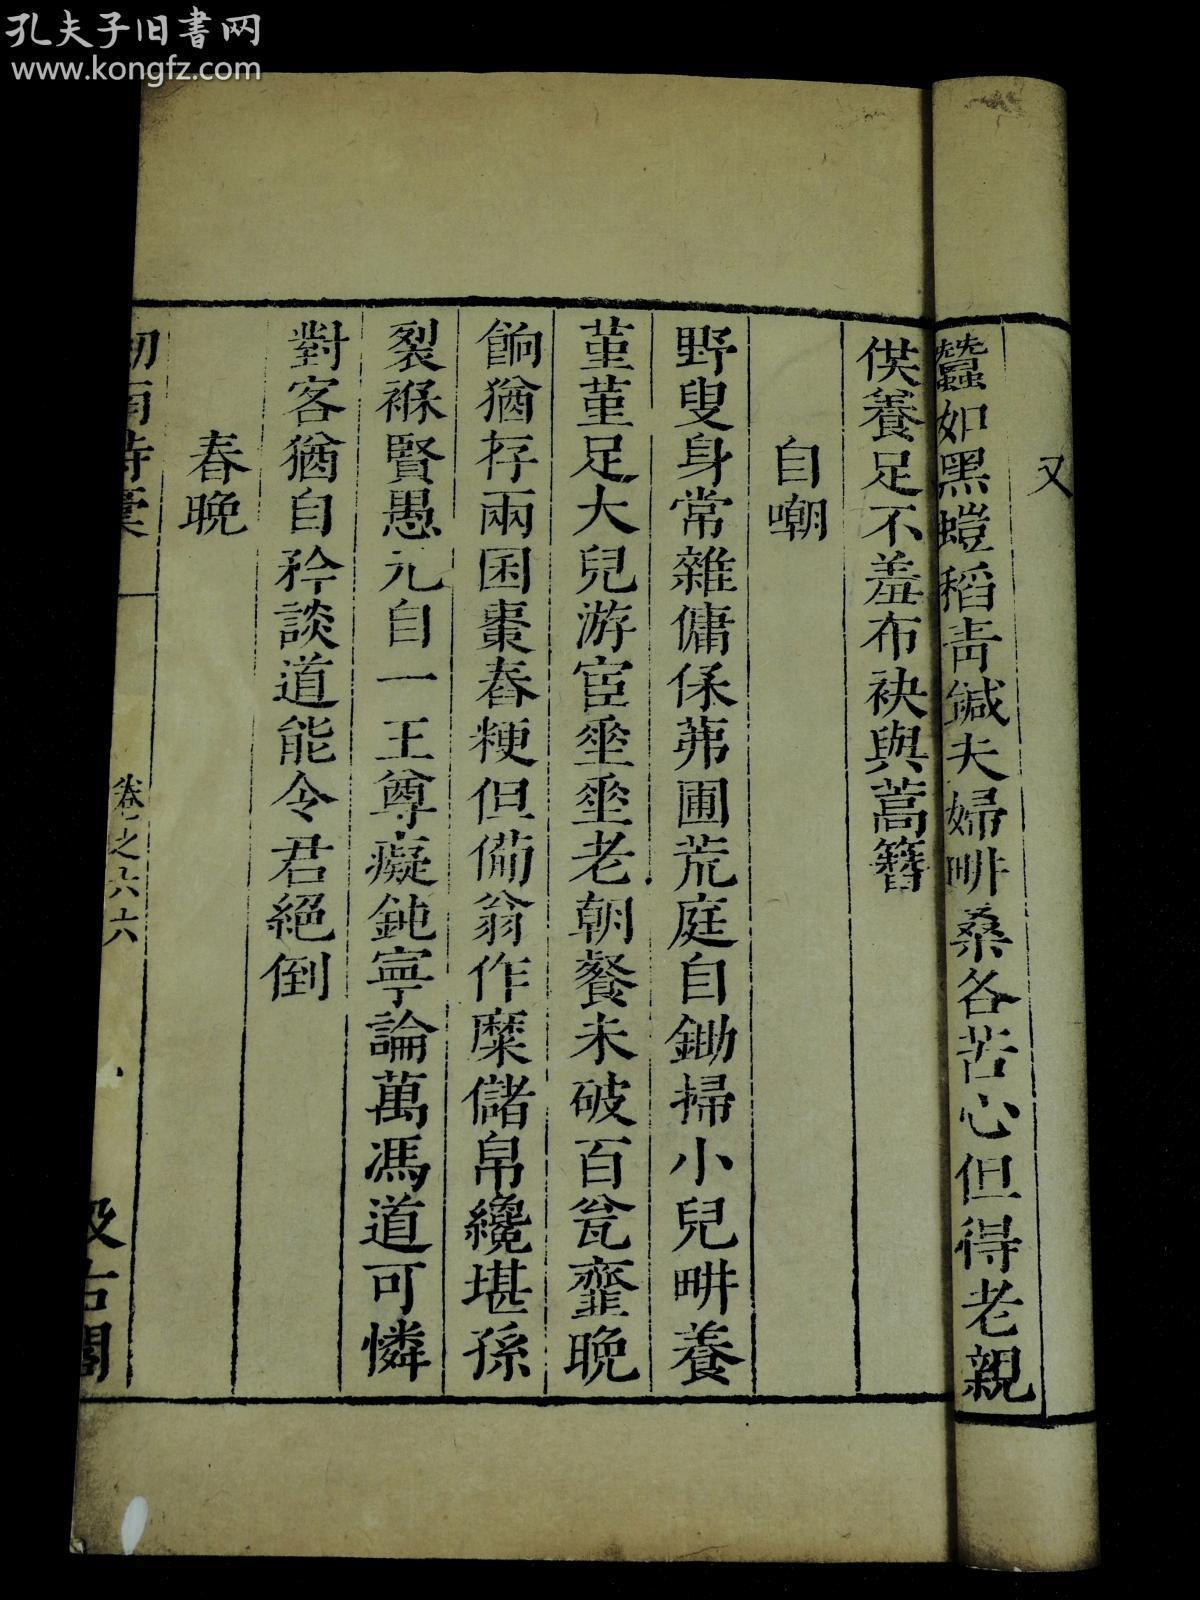 孔夫子旧書网
www.kongfz.com
又
蠶如黑螘稻青鍼夫婦畊桑各苦心但得老親
供養足不羞布袂與蒿簪
自嘲
野叟身常雜傭保茀圃荒庭自鋤掃小兒畊養
堇堇足大兒游宦垂垂老朝餐未破百瓮虀晚
餉猶存兩囷棗舂粳但備翁作糜儲帛纔堪孫
裂褓賢愚元自一王尊癡鈍寧論萬馮道可憐
對客猶自矜談道能令君絕倒
春晚
劒南詩稾
卷之六六
汲古閣